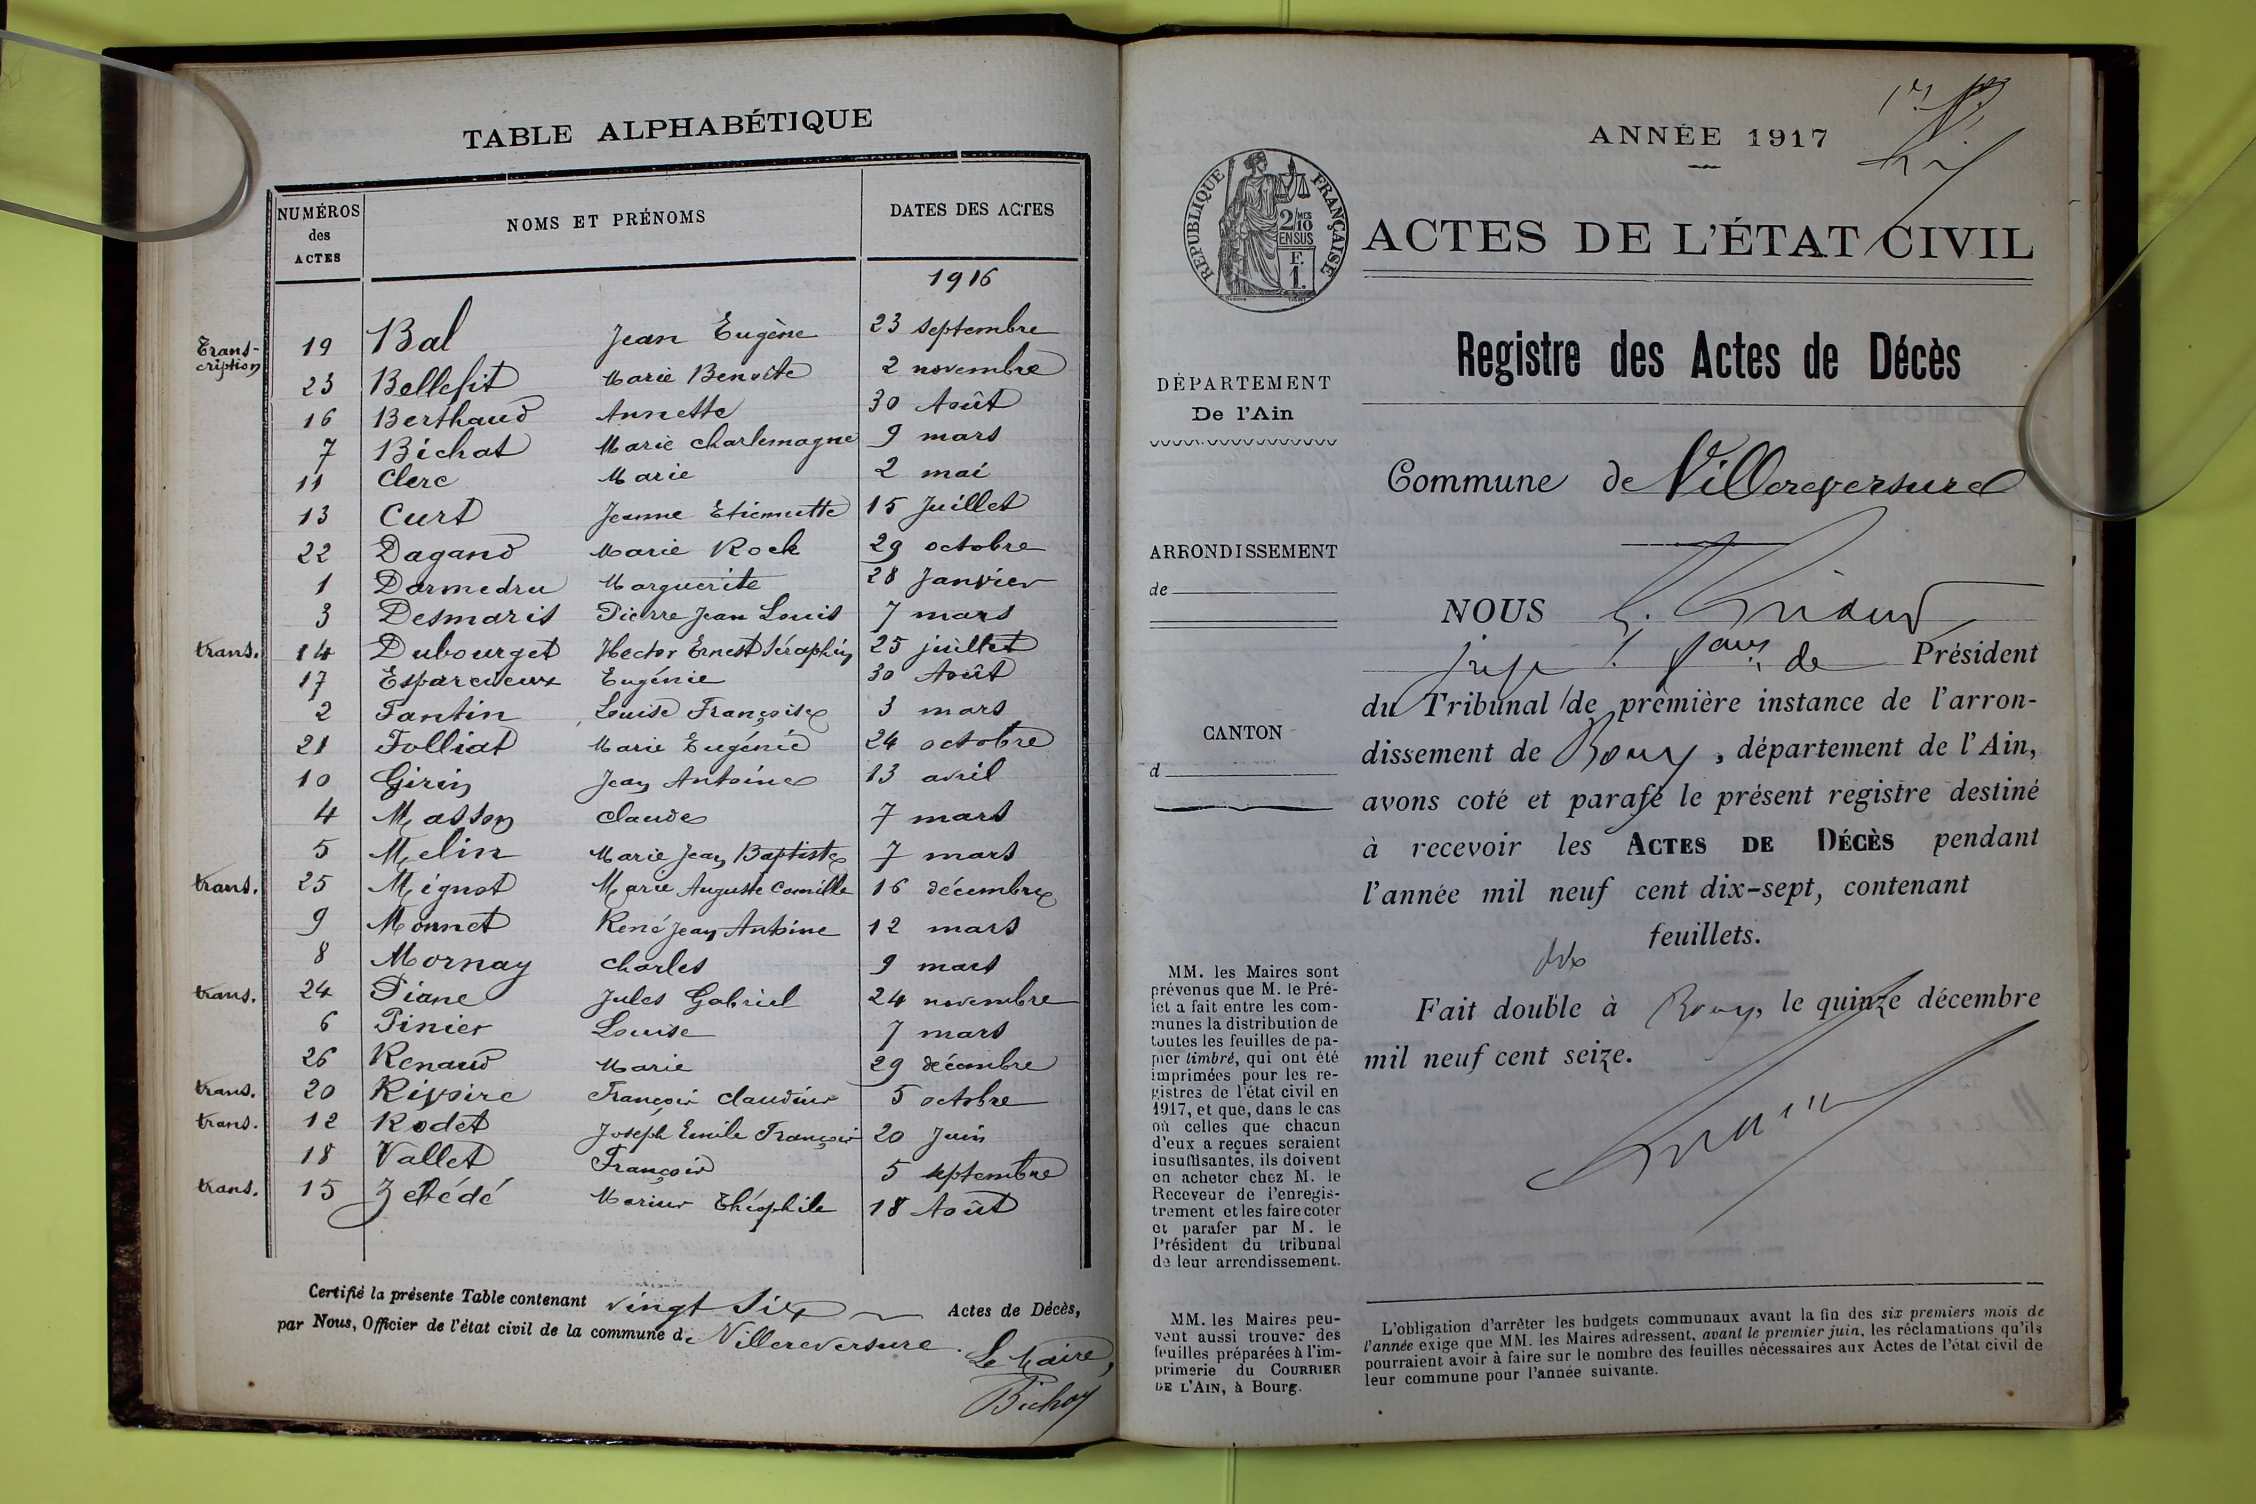 TABLE ALPHABÉTIQUE
NUMÉROS des ACTES NOMS ET PRÉNOMS DATES DES ACTES
1916
Trans-cription 19 Bal Jean Eugène 23 septembre
23 Bellefit Marie Benoite 2 novembre
16 Berthaud Annette 30 Août
7 Bichat Marie Charlemagne 9 mars
11 Clerc Marie 2 mai
13 Curt Jeanne Etiennette 15 Juillet
22 Dagand Marie Rock 29 octobre
1 Darmedru Marguerite 28 Janvier
3 Desmaris Pierre Jean Louis 7 mars
trans. 14 Dubourget Hector Ernest Séraphin 25 juillet
17 Esparcieux Eugénie 30 Août
2 Fantin Louise Françoise 3 mars
21 Folliat Marie Eugénie 24 octobre
10 Girin Jean Antoine 13 avril
4 Masson Claude 7 mars
5 Melin Marie Jean Baptiste 7 mars
trans. 25 Mignot Marie Auguste Camille 16 décembre
9 Monnet René Jean Antoine 12 mars
8 Mornay Charles 9 mars
trans. 24 Piane Jules Gabriel 24 novembre
6 Pinier Louise 7 mars
26 Renaud Marie 29 décembre
trans. 20 Rivoire François Claudius 5 octobre
trans. 12 Rodet Joseph Emile François 20 Juin
18 Vallet François 5 septembre
trans. 15 Zebédé Marius Théophile 18 Août
Certifié la présente Table contenant vingt six Actes de Décès,
par Nous, Officier de l'état civil de la commune de Villereversure.
Le Maire,
Bichat
ANNÉE 1917
RÉPUBLIQUE FRANÇAISE
2/10 MES
EN SUS
F.
1.
ACTES DE L'ÉTAT CIVIL
Registre des Actes de Décès
DÉPARTEMENT
De l'Ain
Commune de Villereversure
ARRONDISSEMENT
de
CANTON
d
NOUS
juge de Président
du Tribunal de première instance de l'arron-
dissement de Bourg, département de l'Ain,
avons coté et parafé le présent registre destiné
à recevoir les ACTES DE DÉCÈS pendant
l'année mil neuf cent dix-sept, contenant
dix feuillets.
Fait double à Bourg, le quinze décembre
mil neuf cent seize.
MM. les Maires sont
prévenus que M. le Pré-
fet a fait entre les com-
munes la distribution de
toutes les feuilles de pa-
pier timbré, qui ont été
imprimées pour les re-
gistres de l'état civil en
1917, et que, dans le cas
où celles que chacun
d'eux a reçues seraient
insuffisantes, ils doivent
en acheter chez M. le
Receveur de l'enregis-
trement et les faire coter
et parafer par M. le
Président du tribunal
de leur arrondissement.
MM. les Maires peu-
vent aussi trouver des
feuilles préparées à l'im-
primerie du COURRIER
DE L'AIN, à Bourg.
L'obligation d'arrêter les budgets communaux avant la fin des six premiers mois de
l'année exige que MM. les Maires adressent, avant le premier juin, les réclamations qu'ils
pourraient avoir à faire sur le nombre des feuilles nécessaires aux Actes de l'état civil de
leur commune pour l'année suivante.